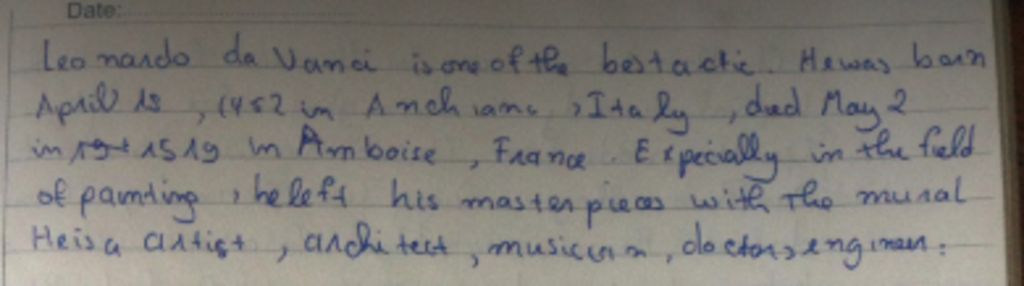 Date:
Leonardo da Vanci is one of the best actic. He was born
April 15, 1452 in Anchiano, Italy, died May 2
in 1519 in Amboise, France. Expecially in the field
of painting, he left his masterpieces with the mural
He is a artist, architect, musician, doctor, engineer.